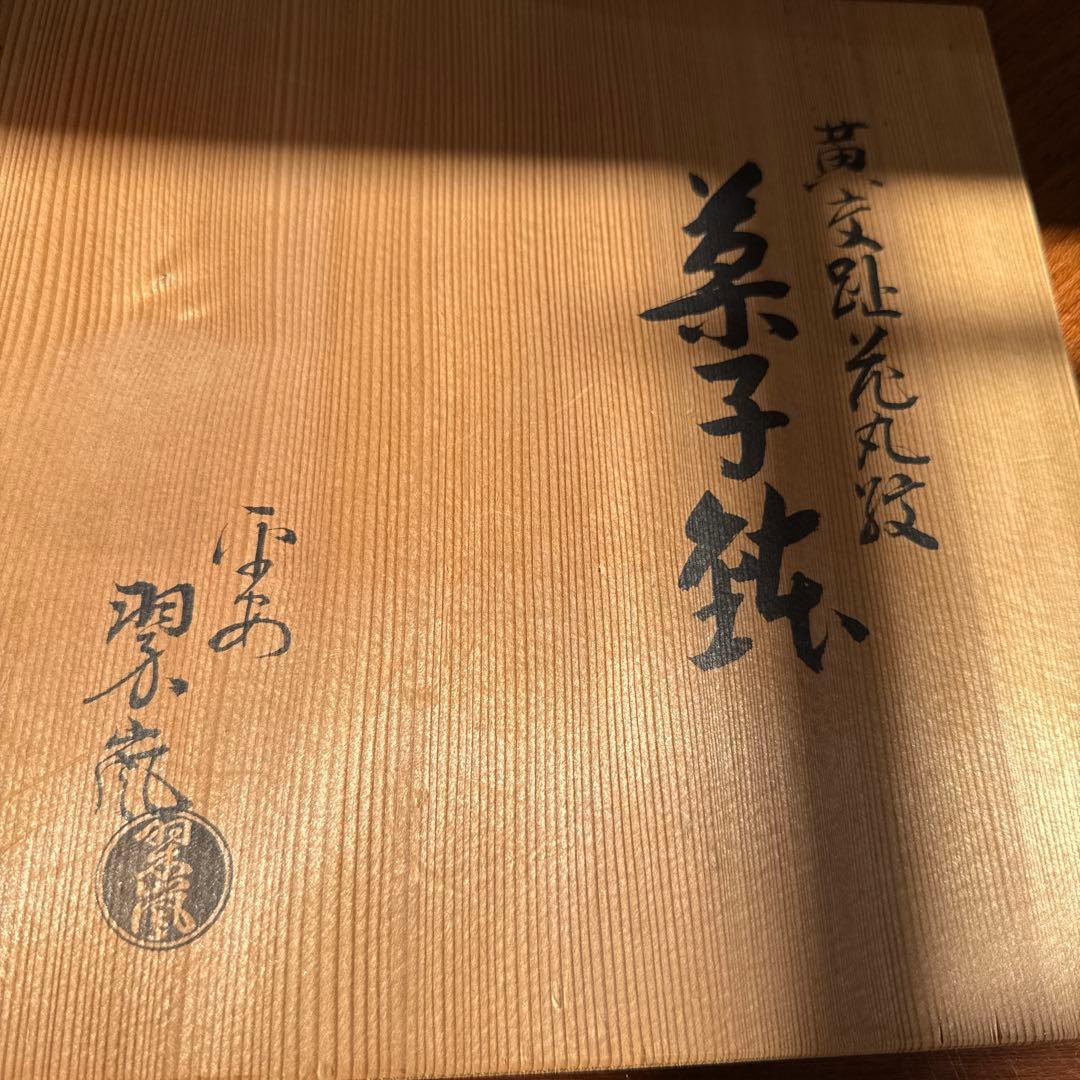 黄交趾花丸紋
菓子鉢
平安
翠嵐
翠嵐